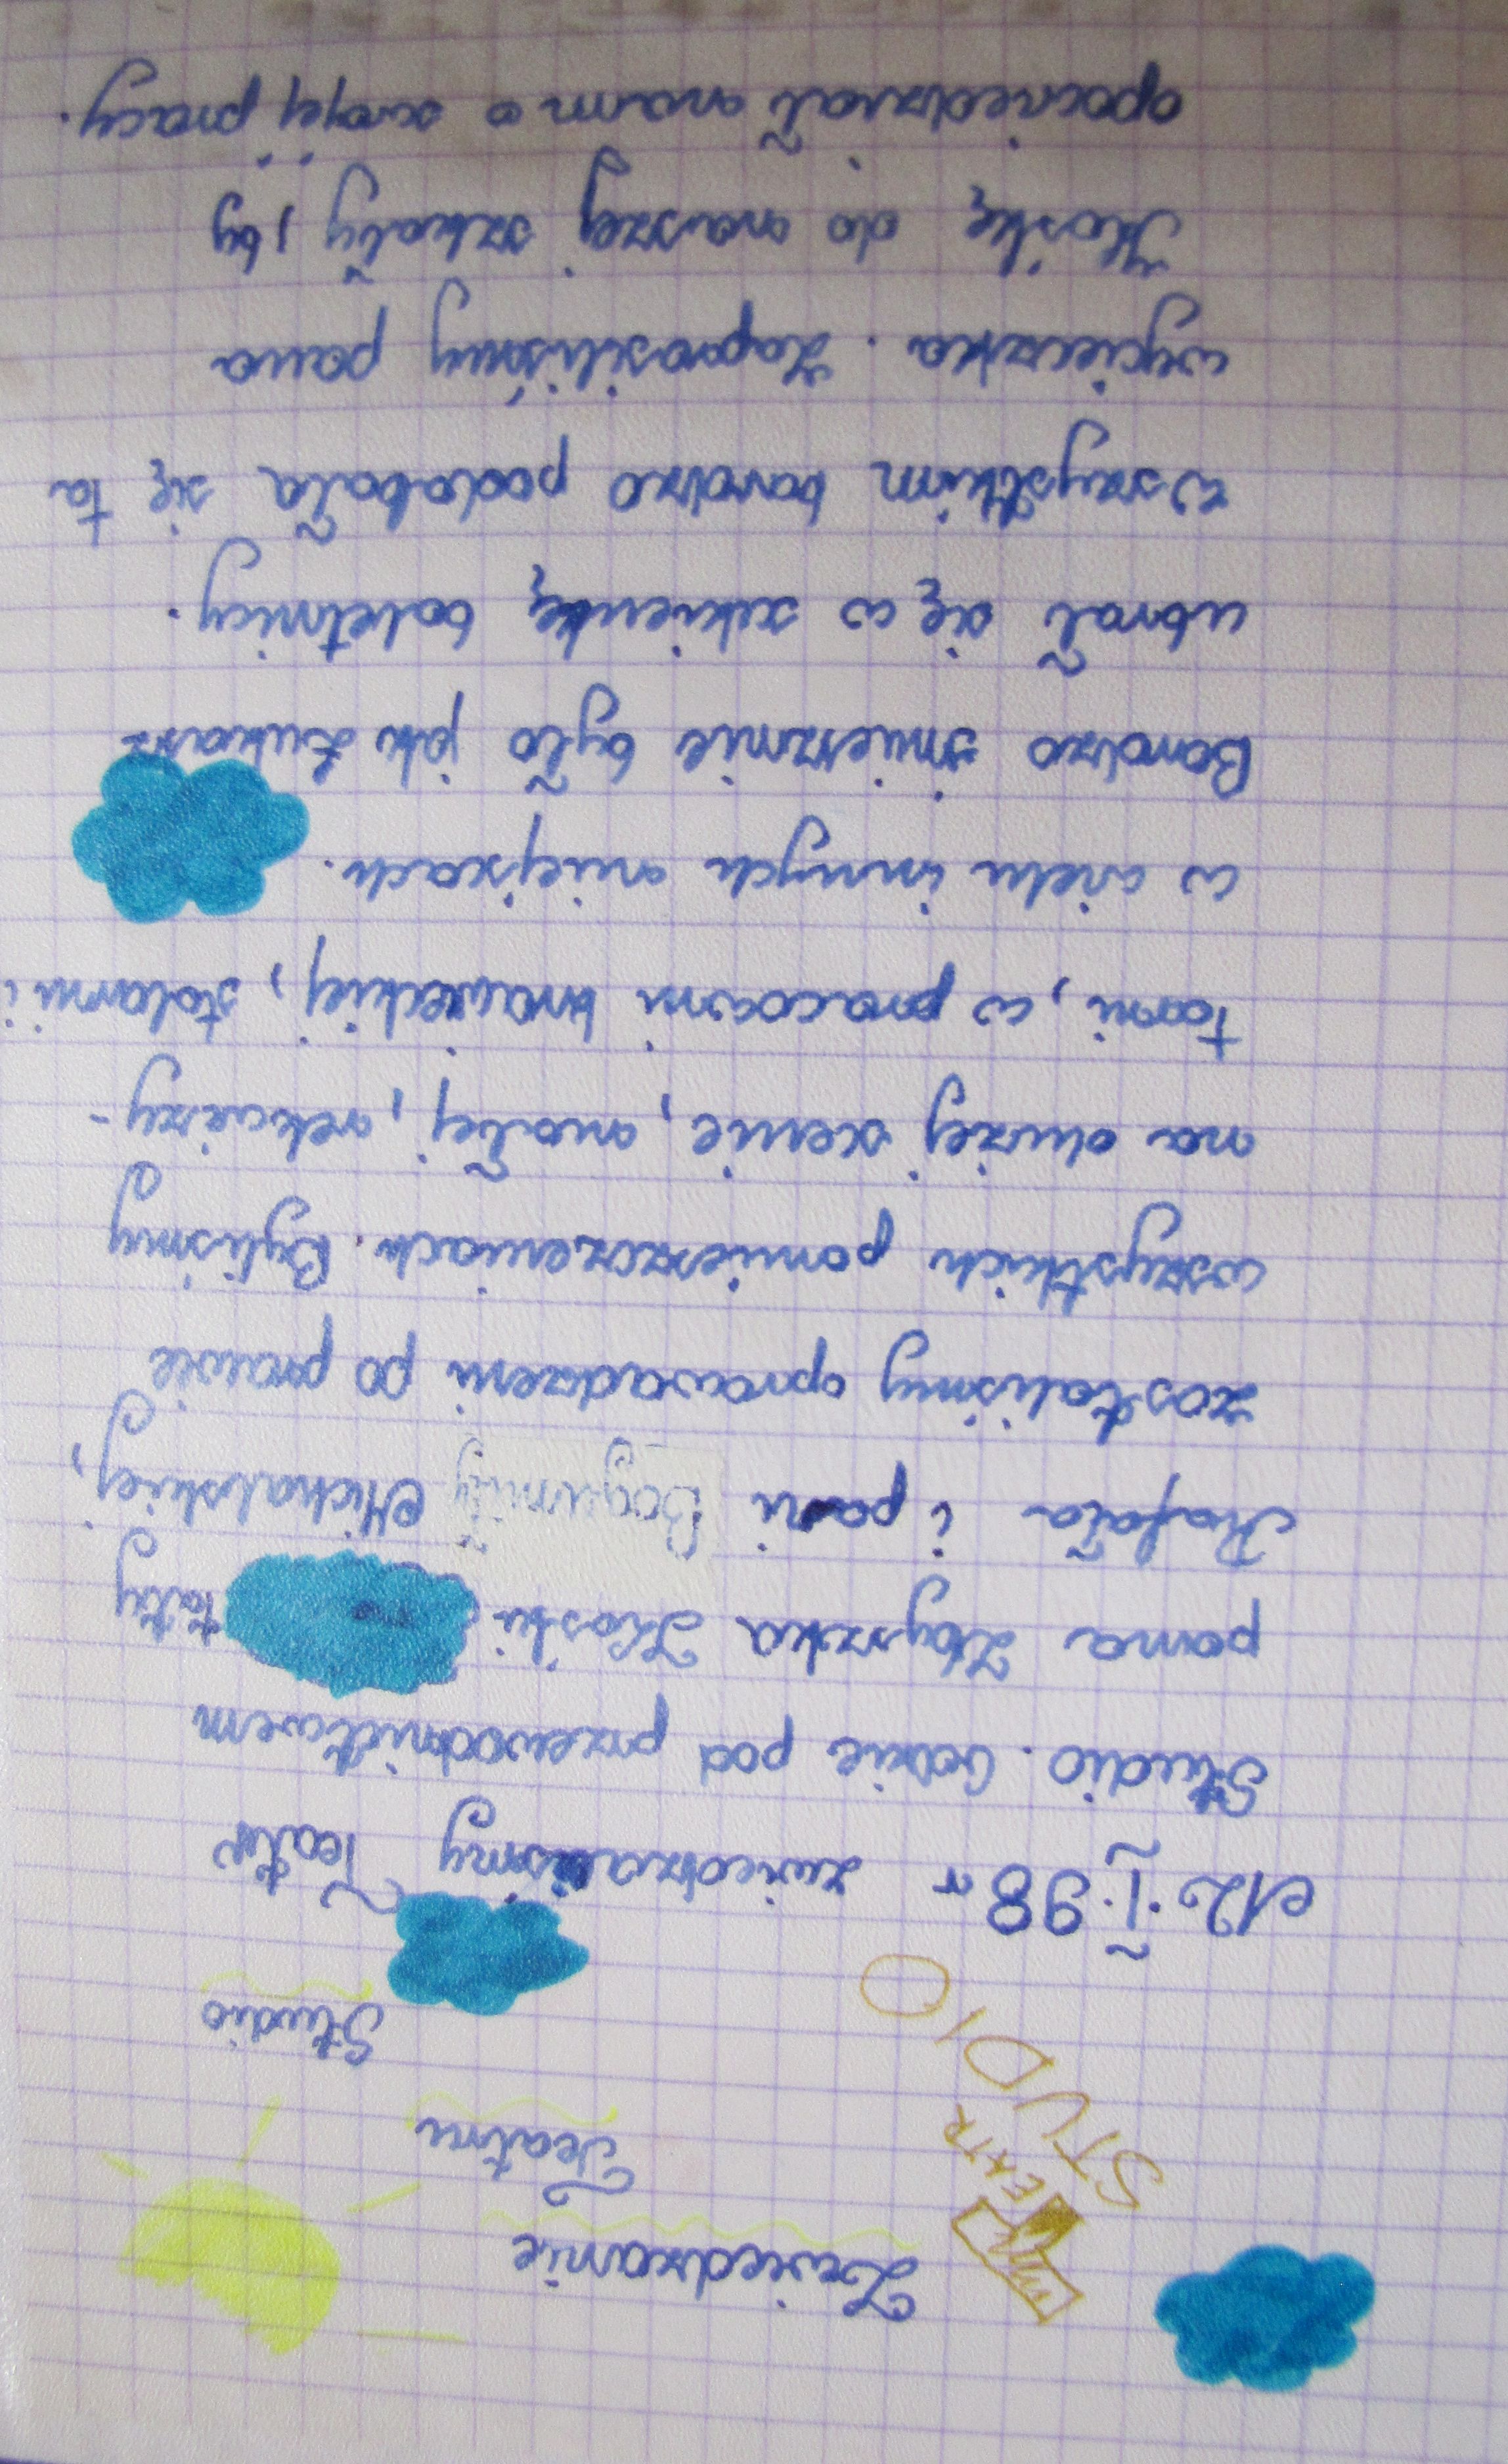 Zwiedzanie
Teatru
Studio
STUDIO
12.I.98r zwiedzaliśmy Teatr
Studio. Gdzie pod przewodnictwem
pana Zbyszka Koski taty
Rafała i pani Bogumiły Michalskiej,
zostaliśmy oprowadzeni po prawie
wszystkich pomieszczeniach. Byliśmy
na dużej scenie, małej, rekwizy-
torni, w pracowni krawieckiej, stolarni i
w wielu innych miejscach.
Bardzo śmiesznie było jak Łukasz
ubrał się w sukienkę baletnicy.
Wszystkim bardzo podobała się ta
wycieczka. Zaprosiliśmy pana
Koskę do naszej szkoły, by
opowiedział nam o swojej pracy.